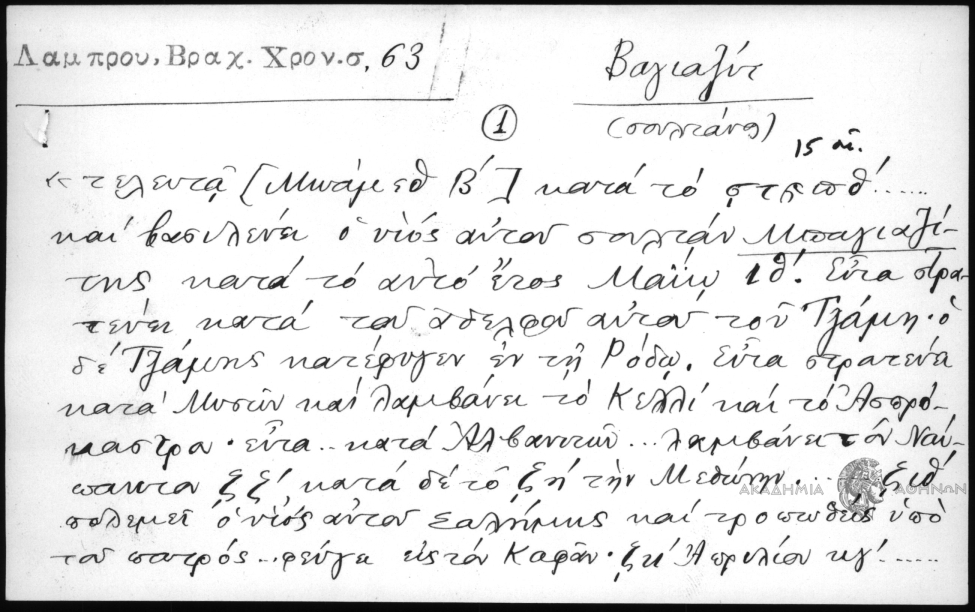 Λαμπρου, Βραχ. Χρον. σ, 63
Βαγιαζήτ
(σουλτάνος)
①
15 αἰ.
« τελευτᾷ [Μωάμεθ Β´] κατά τό ϛϡπθ´......
καί βασιλεύει ὁ υἱός αὐτοῦ σουλτάν Μπαγιαζί-
της κατά τό αὐτό ἔτος Μαΐῳ ιθ´. Εἶτα στρα-
τεύει κατά τοῦ ἀδελφοῦ αὐτοῦ τοῦ Τζάμη· ὁ
δέ Τζάμης κατέφυγεν ἐν τῇ Ρόδῳ. Εἶτα στρατεύει
κατά Μυσῶν καί λαμβάνει τό Κελλί καί τό Ἀσπρό-
καστρο· εἶτα.. κατά Ἀλβανιτῶν... λαμβάνει τόν Ναύ-
παντον ζζ´, κατά δέ τό ζη´ τήν Μεθώνην....
ζιθ´
ΑΚΑΔΗΜΙΑ ΑΘΗΝΩΝ
πολεμεῖ ὁ υἱός αὐτοῦ Σαλήμης καί τροπωθείς ὑπό
τοῦ πατρός... φεύγει εἰς τόν Καφᾶν· ζκ´ Ἀπριλίου κγ´......